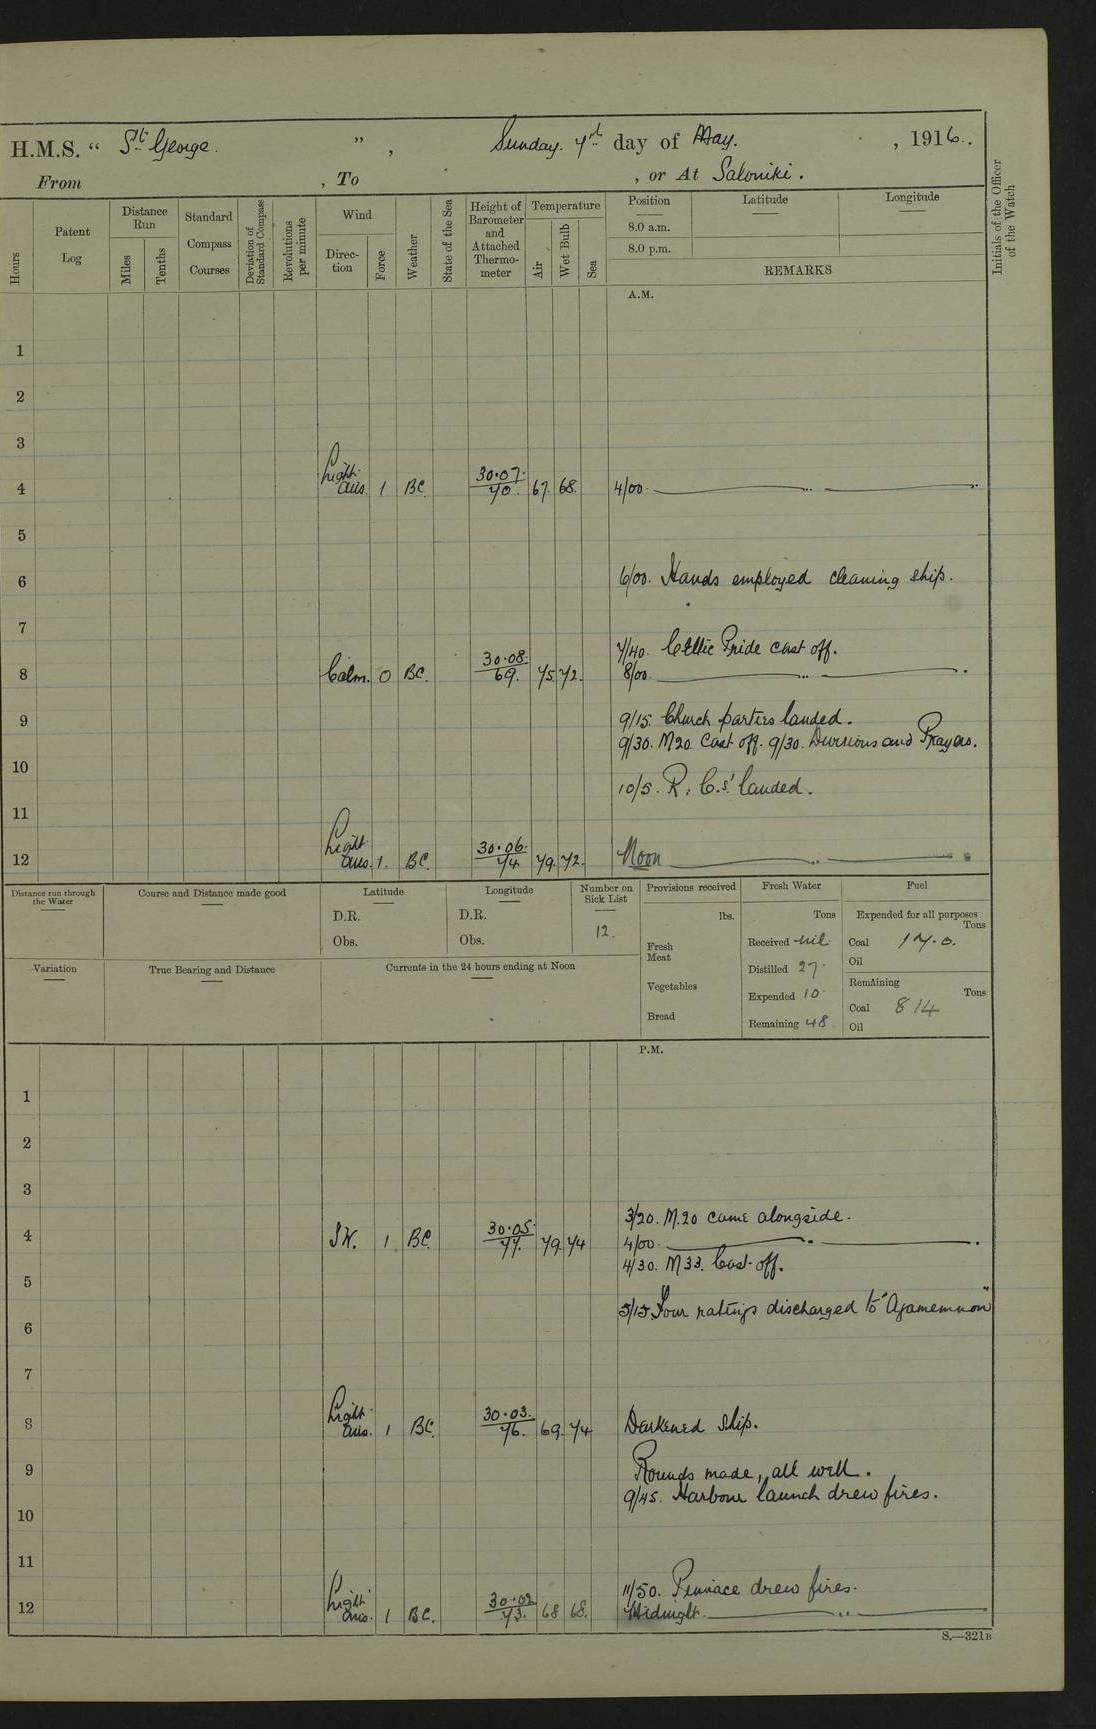 H.M.S. “ St George. ” , Sunday. 7th day of May. , 1916.
From , To , or At Saloniki.
Hours
Patent Log
Distance Run
Miles
Tenths
Standard Compass Courses
Deviation of Standard Compass
Revolutions per minute
Wind
Direction
Force
Weather
State of the Sea
Height of Barometer and Attached Thermometer
Temperature
Air
Wet Bulb
Sea
Position
8.0 a.m.
8.0 p.m.
Latitude
Longitude
REMARKS
Initials of the Officer of the Watch
A.M.
1
2
3
4 Light airs. 1 BC. 30.07. 70. 67. 68. 4/00.
5
6 6/00. Hands employed cleaning ship.
7
7/40. Celtic Pride cast off.
8 Calm. 0 BC. 30.08. 69. 75. 72. 8/00
9 9/15. Church parties landed.
9/30. M20. Cast off. 9/30. Divisions and Prayers.
10
10/5. R. C.s' landed.
11
12 Light airs. 1. BC. 30.06. 74 79. 72. Noon
Distance run through the Water
Course and Distance made good
Latitude
D.R.
Obs.
Longitude
D.R.
Obs.
Number on Sick List
12.
Provisions received
lbs.
Fresh Meat
Vegetables
Bread
Fresh Water
Tons
Received nil
Distilled 27
Expended 10
Remaining 48
Fuel
Expended for all purposes
Tons
Coal 17.0.
Oil
Remaining
Tons
Coal 814
Oil
Variation
True Bearing and Distance
Currents in the 24 hours ending at Noon
P.M.
1
2
3
3/20. M.20 came alongside.
4 SW. 1 BC. 30.05. 77. 79. 74 4/00
4/30. M33. Cast off.
5
5/15 Four ratings discharged to "Agamemnon"
6
7
8 Light airs. 1 BC. 30.03. 76. 69. 74 Darkened ship.
9 Rounds made, all well.
9/45. Harbour launch drew fires.
10
11
11/50. Pinnace drew fires.
12 Light airs. 1 BC. 30.02 73. 68 68. Midnight
S.—321B